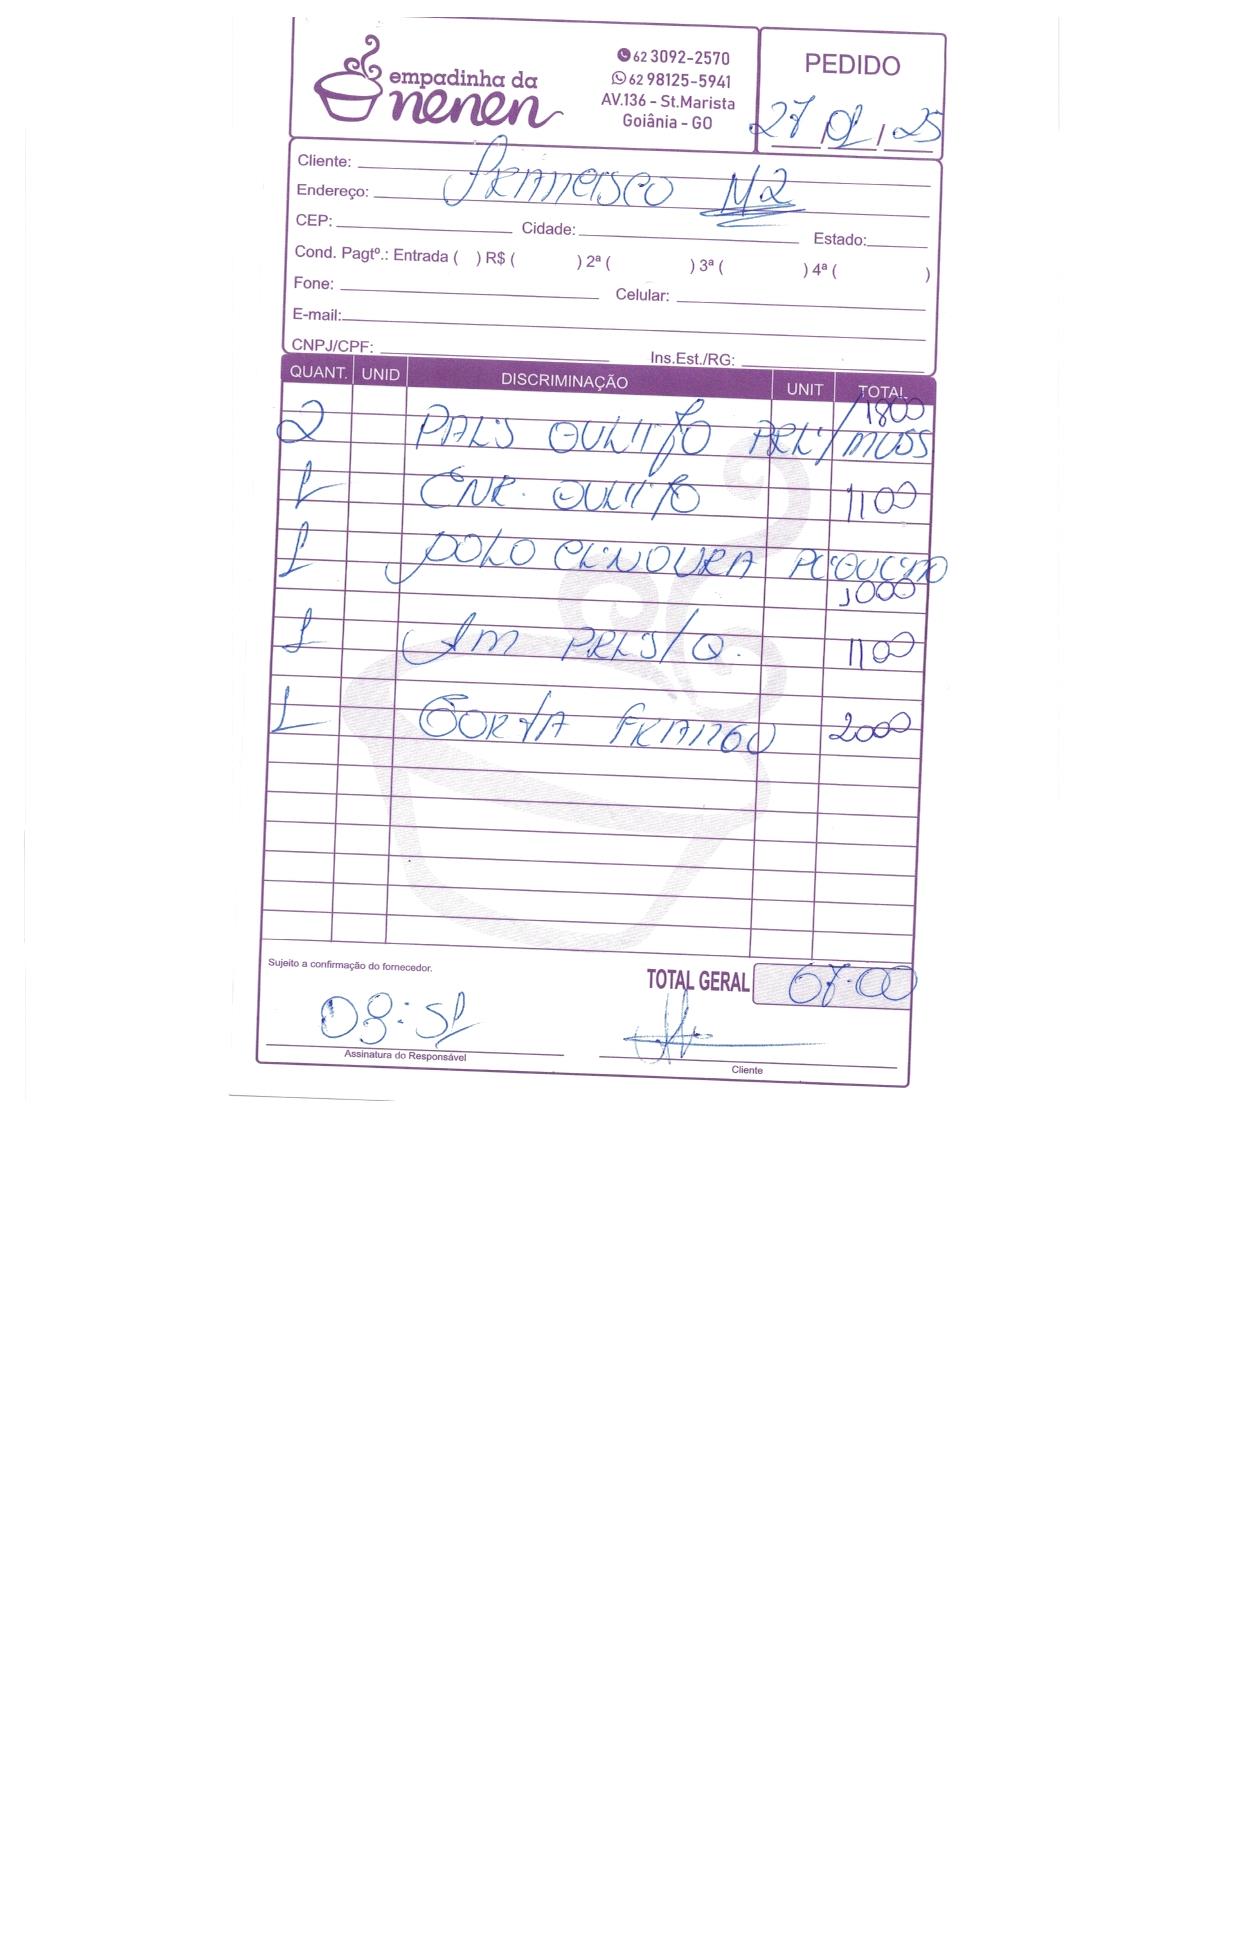 empadinha da
nenen
62 3092-2570
62 98125-5941
AV.136 - St.Marista
Goiânia - GO
PEDIDO
27/01/25
Cliente:
Endereço:
Francisco M2
CEP: Cidade: Estado:
Cond. Pagtº.: Entrada ( ) R$ ( ) 2ª ( ) 3ª ( ) 4ª ( )
Fone: Celular:
E-mail:
CNPJ/CPF: Ins.Est./RG:
QUANT. UNID DISCRIMINAÇÃO UNIT TOTAL
1800
2 MUSS
1 1100
1 CENOURA
1000
1 1100
1 TORTA FRANGO 2000
Sujeito a confirmação do fornecedor.
TOTAL GERAL 67.00
08:51
Assinatura do Responsável
Cliente